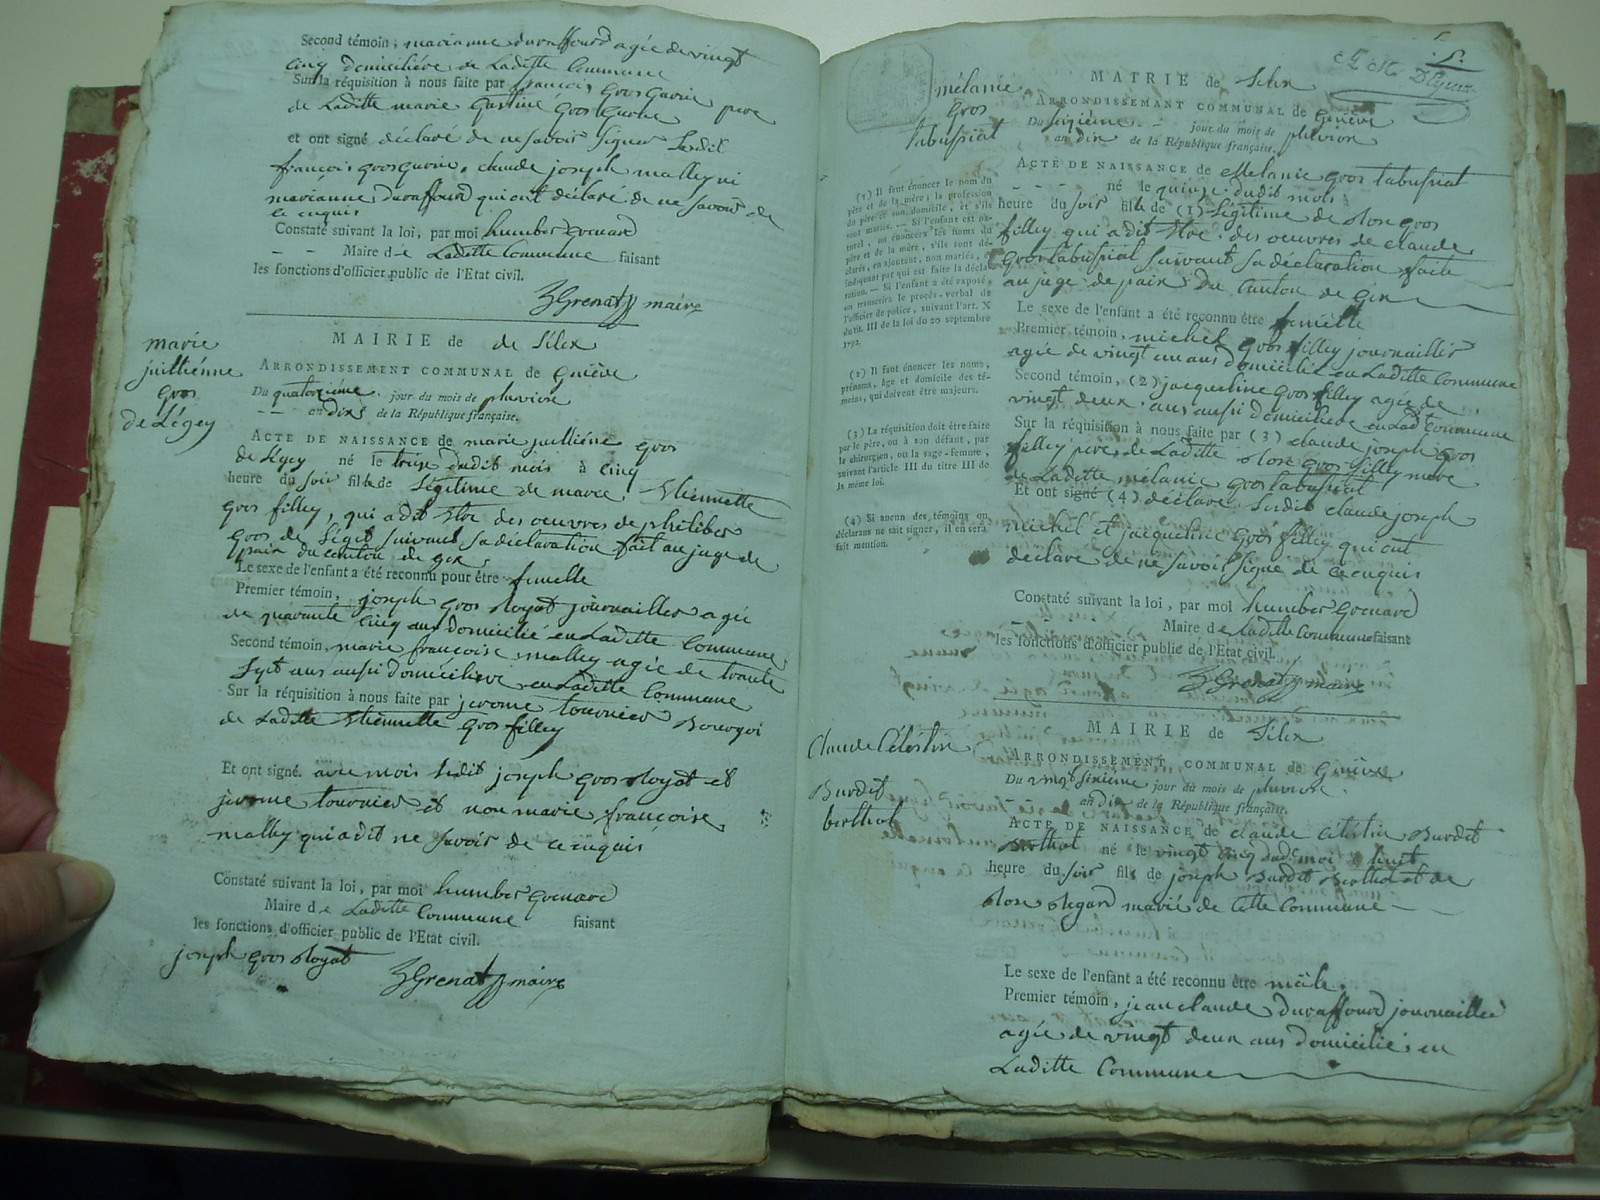 Second témoin, marianne duraffourd agée de vingt
cinq domiciliére de Laditte Commune
Sur la réquisition à nous faite par françois gros gurin pere
de Laditte marie
et ont signé déclaré de ne savoir signer Ledit
françois gros gurin, claude joseph malley ni
marianne duraffourd qui ont déclaré de ne savoir de
ce enquis
Constaté suivant la loi, par moi humber grenard
Maire de Laditte Commune faisant
les fonctions d'officier public de l'Etat civil.
Grenat maire
marie
juilliénne
gros
de Légey
MAIRIE de de Lélex
ARRONDISSEMENT COMMUNAL de Genève
Du quatorziéme jour du mois de pluviose
an dix de la République française.
ACTE DE NAISSANCE de marie juilliéne gros
de Légey né le treize dudit mois à cinq
heure du soir fille de Légitime de marie Etiennette
gros filley, qui a dit Etre des oeuvres de philiber
gros de Légit suivant sa déclaration fait au juge de
paix du canton de gex
Le sexe de l'enfant a été reconnu pour être femelle
Premier témoin, joseph gros Royat journailler agé
de quarante cinq ans domicilié en Laditte Commune
Second témoin, marie françoise malley agée de trante
Sept ans aussi domiciliere en Laditte Commune
Sur la réquisition à nous faite par jerome tournier
de Laditte Etiennette gros filley
Et ont signé. avec mois Ledit joseph gros Royat et
jerome tournier et non marie françoise
malley qui a dit ne savoir de ce enquis
Constaté suivant la loi, par moi humber grenard
Maire de Laditte Commune faisant
les fonctions d'officier public de l'Etat civil.
joseph gros Royat
Grenat maire
mélanie
gros
tabussiat
MAIRIE de Lélex
ARRONDISSEMENT COMMUNAL de Genève
Du seizième jour du mois de pluviose
an dix de la République française.
ACTE DE NAISSANCE de Melanie gros tabussiat
né le quinze dudit mois
heure du soir fille de (1) Légitime de Rose gros
filley qui a dit Etre des oeuvres de claude
gros tabussiat suivant sa déclaration faite
au juge de paix du Canton de Gex
Le sexe de l'enfant a été reconnu être femelle
Premier témoin, michel gros filley journaillier
agée de vingt un ans domicilié en Laditte Commune
Second témoin, (2) jacqueline gros filley agée de
vingt deux ans aussi domiciliere en Ladt Commune
Sur la réquisition à nous faite par (3) claude joseph gros
filley pere de Laditte Rose gros filley mere
de Laditte mélanie gros tabussiat
Et ont signé (4) déclaré Ledit claude joseph
michel et jacqueline gros filley qui ont
déclaré de ne savoir signé de ce enquis
Constaté suivant la loi, par moi humber grenard
Maire de Laditte Commune faisant
les fonctions d'officier public de l'Etat civil.
Grenat maire
(1) Il faut énoncer le nom du
père et de la mère; la profession
du père et son domicile, et s'ils
sont mariés. — Si l'enfant est na-
turel, on énoncera les noms du
père et de la mère, s'ils sont dé-
clarés, en ajoutant, non mariés, et
indiquant par qui est faite la décla-
ration. — Si l'enfant a été exposé,
on transcrira le procès-verbal de
l'officier de police, suivant l'art. X
du tit. III de la loi du 20 septembre
1792.
(2) Il faut énoncer les noms,
prénoms, âge et domicile des té-
moins, qui doivent être majeurs.
(3) La réquisition doit être faite
par le père, ou à son défaut, par
le chirurgien, ou la sage-femme,
suivant l'article III du titre III de
la même loi.
(4) Si aucun des témoins ou
déclarans ne sait signer, il en sera
fait mention.
Claude Célestin
Burdit
berthot
MAIRIE de Lélex
ARRONDISSEMENT COMMUNAL de Genève
Du vingt sixieme jour du mois de pluviose
an dix de la République française.
ACTE DE NAISSANCE de claude célestin Burdit
Berthot né le vingt cinq dudt moi à huit
heure du soir fils de joseph Burdit Berthot et de
Rose Regard marié de cette Commune
Le sexe de l'enfant a été reconnu être mâle.
Premier témoin, jean claude duraffourd journaillié
agée de vingt deux ans domicilié en
Laditte Commune